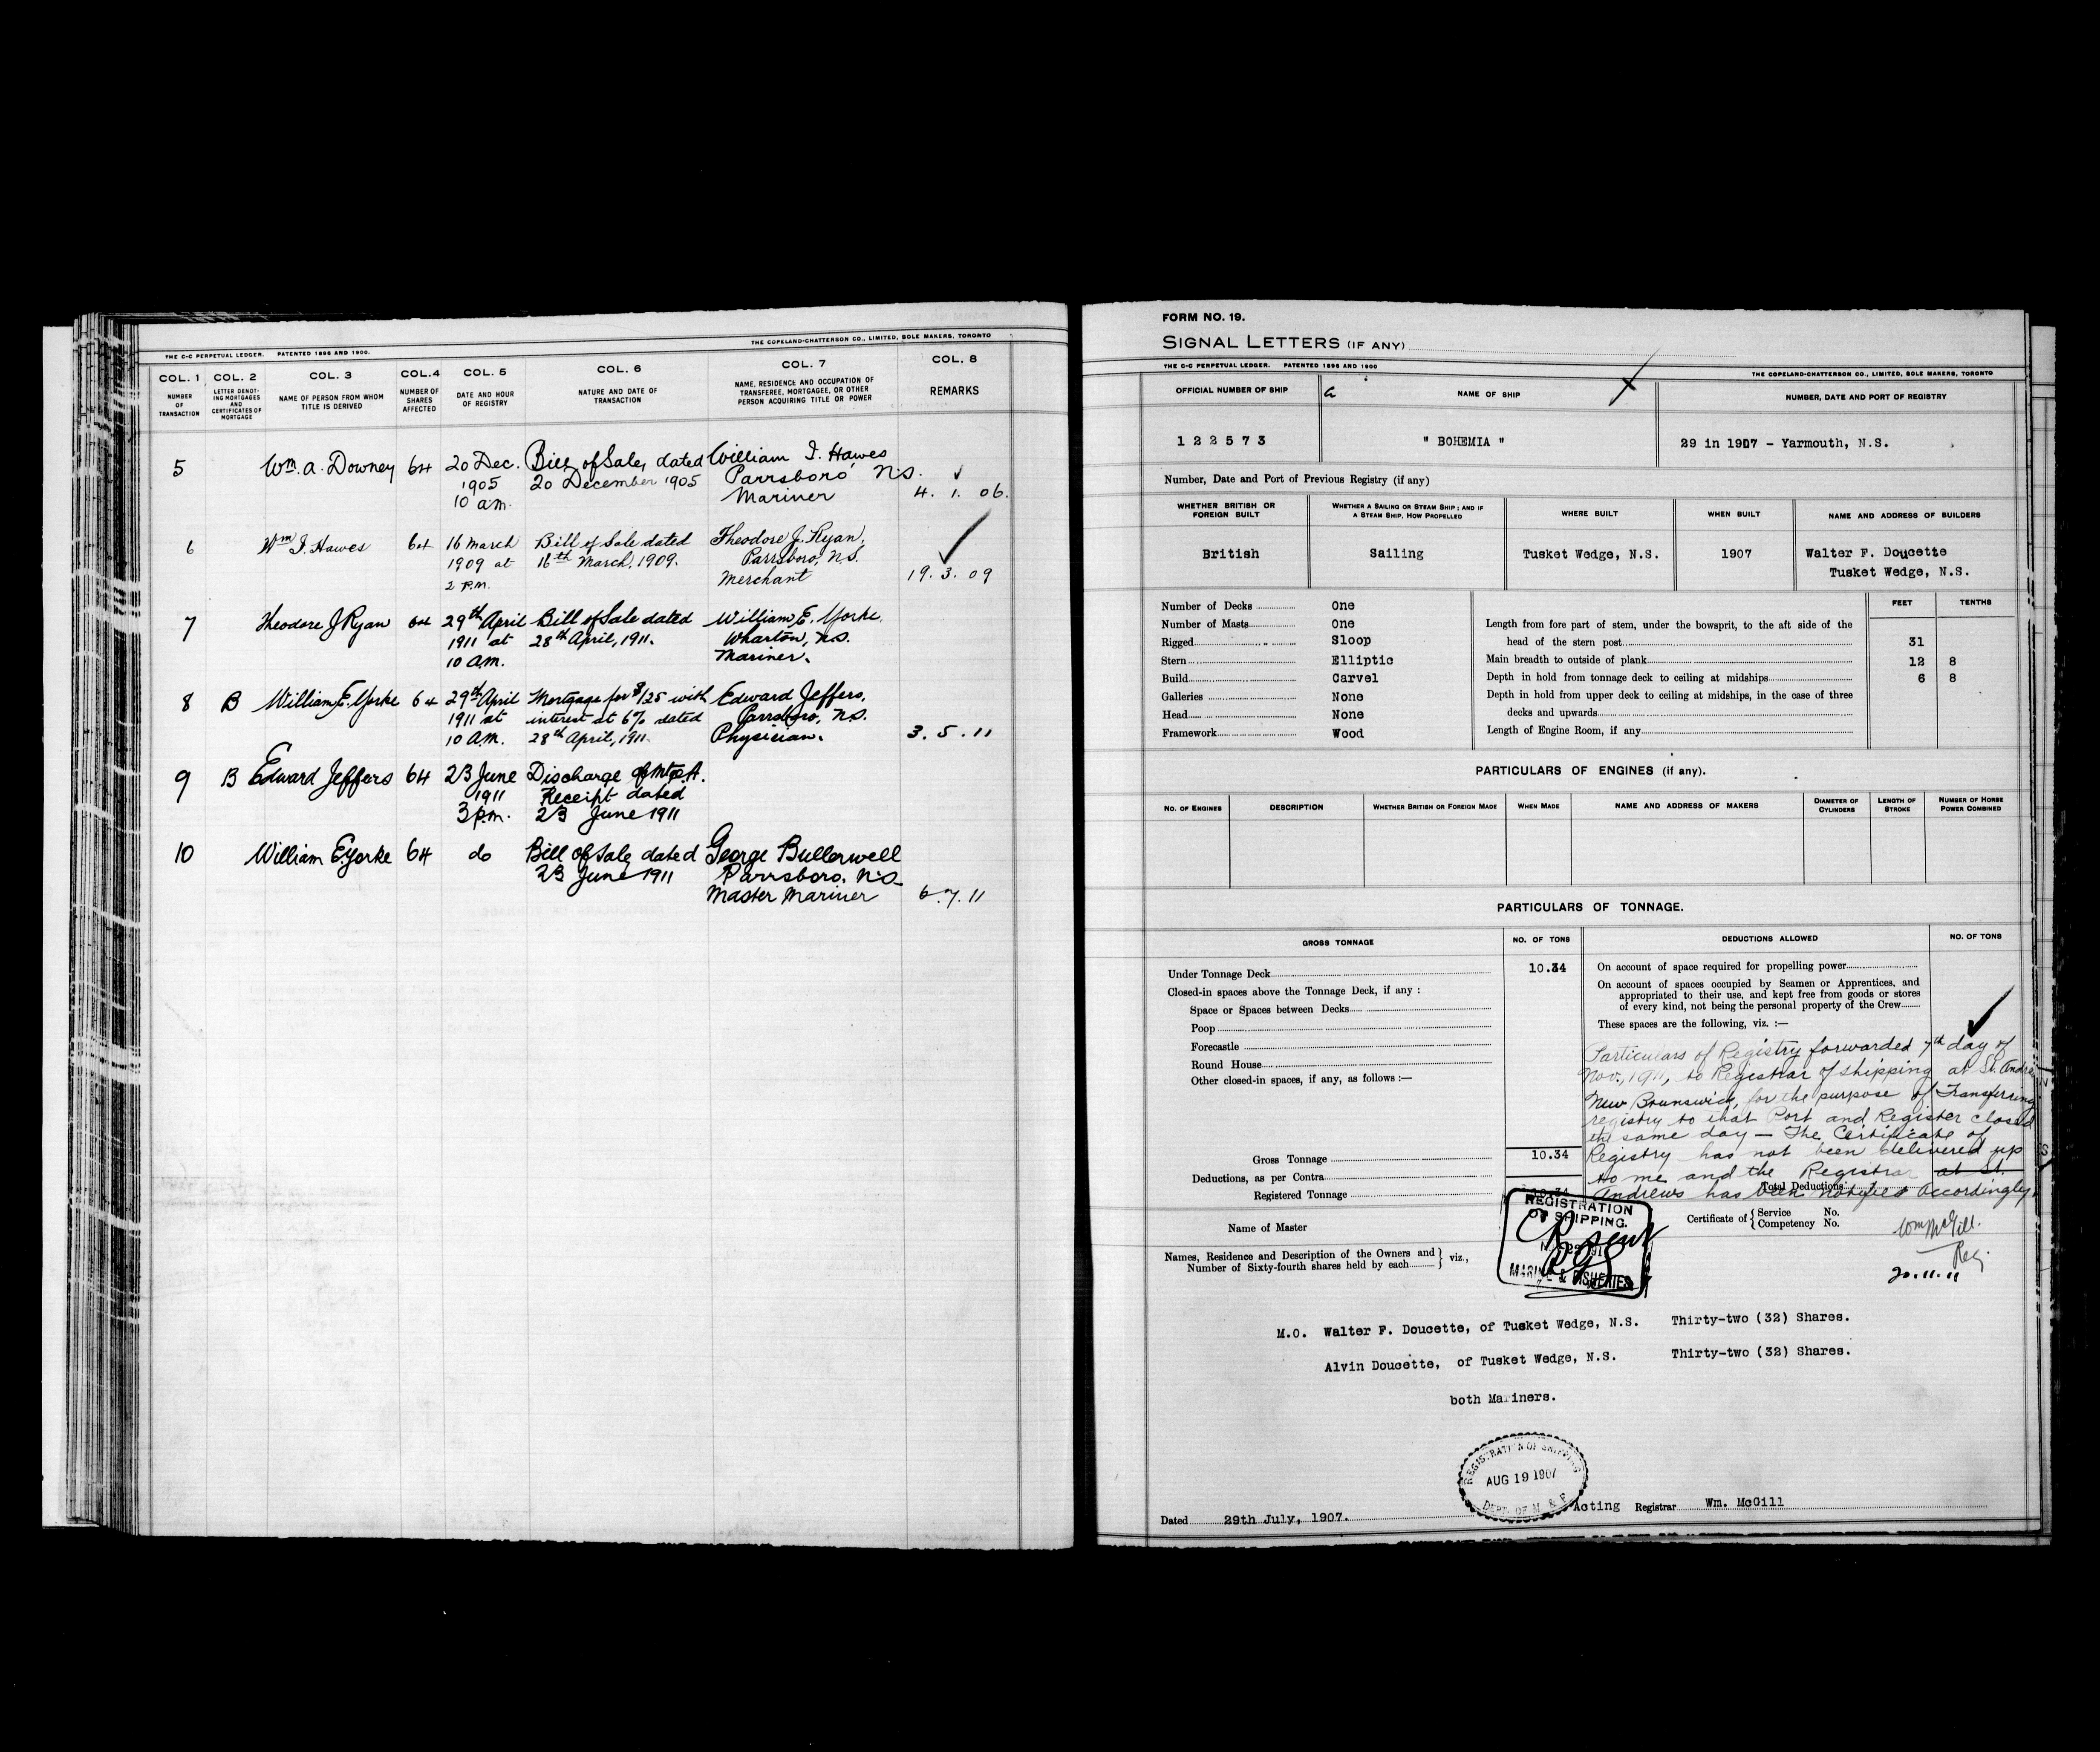 THE C-C PERPETUAL LEDGER. PATENTED 1896 AND 1900.
THE COPELAND-CHATTERSON CO., LIMITED, SOLE MAKERS, TORONTO
COL. 1 COL. 2 COL. 3 COL. 4 COL. 5 COL. 6 COL. 7 COL. 8
NUMBER OF TRANSACTION
LETTER DENOTING MORTGAGES AND CERTIFICATES OF MORTGAGE
NAME OF PERSON FROM WHOM TITLE IS DERIVED
NUMBER OF SHARES AFFECTED
DATE AND HOUR OF REGISTRY
NATURE AND DATE OF TRANSACTION
NAME, RESIDENCE AND OCCUPATION OF TRANSFEREE, MORTGAGEE, OR OTHER PERSON ACQUIRING TITLE OR POWER
REMARKS
5 Wm. A. Downey 64 20 Dec. Bill of Sale, dated William I. Hawes
1905 20 December 1905 Parrsboro N.S.
10 am. Mariner 4. 1. 06.
6 Wm I. Hawes 64 16 March Bill of Sale dated Theodore J. Ryan,
1909 at 16th March, 1909. Parrsboro, N.S.
2 P.M. Merchant 19. 3. 09
7 Theodore J Ryan 64 29th April Bill of Sale dated William E. Yorke,
1911 at 28th April, 1911. Wharton, N.S.
10 A.M. Mariner.
8 B William E. Yorke 64 29th April Mortgage for $125 with Edward Jeffers,
1911 at interest at 6% dated Parrsboro, N.S.
10 A.M. 28th April, 1911. Physician. 3. 5. 11
9 B Edward Jeffers 64 23 June Discharge of Mtge A.
1911 Receipt dated
3 p.m. 23 June 1911
10 William E. Yorke 64 do Bill of Sale, dated George Bullerwell
23 June 1911 Parrsboro, N.S.
Master Mariner 6. 7. 11
FORM NO. 19.
SIGNAL LETTERS (IF ANY)
THE C-C PERPETUAL LEDGER. PATENTED 1896 AND 1900
THE COPELAND-CHATTERSON CO., LIMITED, SOLE MAKERS, TORONTO
OFFICIAL NUMBER OF SHIP NAME OF SHIP NUMBER, DATE AND PORT OF REGISTRY
122573 " BOHEMIA " 29 in 1907 - Yarmouth, N.S.
Number, Date and Port of Previous Registry (if any)
WHETHER BRITISH OR FOREIGN BUILT
WHETHER A SAILING OR STEAM SHIP; AND IF A STEAM SHIP, HOW PROPELLED
WHERE BUILT
WHEN BUILT
NAME AND ADDRESS OF BUILDERS
British Sailing Tusket Wedge, N.S. 1907 Walter F. Doucette
Tusket Wedge, N.S.
FEET TENTHS
Number of Decks One
Number of Masts One
Rigged Sloop
Stern Elliptic
Build Carvel
Galleries None
Head None
Framework Wood
Length from fore part of stem, under the bowsprit, to the aft side of the
head of the stern post 31
Main breadth to outside of plank 12 8
Depth in hold from tonnage deck to ceiling at midships 6 8
Depth in hold from upper deck to ceiling at midships, in the case of three
decks and upwards
Length of Engine Room, if any
PARTICULARS OF ENGINES (if any).
NO. OF ENGINES
DESCRIPTION
WHETHER BRITISH OR FOREIGN MADE
WHEN MADE
NAME AND ADDRESS OF MAKERS
DIAMETER OF CYLINDERS
LENGTH OF STROKE
NUMBER OF HORSE POWER COMBINED
PARTICULARS OF TONNAGE.
GROSS TONNAGE NO. OF TONS DEDUCTIONS ALLOWED NO. OF TONS
Under Tonnage Deck 10.34
Closed-in spaces above the Tonnage Deck, if any :
Space or Spaces between Decks
Poop
Forecastle
Round House
Other closed-in spaces, if any, as follows :—
Gross Tonnage 10.34
Deductions, as per Contra
Registered Tonnage 10.34
On account of space required for propelling power
On account of spaces occupied by Seamen or Apprentices, and
appropriated to their use, and kept free from goods or stores
of every kind, not being the personal property of the Crew
These spaces are the following, viz. :—
Particulars of Registry forwarded 7th day of
Nov., 1911, to Registrar of Shipping at St. Andrews
New Brunswick, for the purpose of Transferring
registry to that Port and Register closed
the same day — The Certificate of
Registry has not been delivered up
to me and the Registrar at St.
Andrews has been notified accordingly
Total Deductions
Wm McGill.
Reg.
20.11.11
Name of Master
Certificate of { Service No.
Competency No.
REGISTRATION
OF SHIPPING.
MARINE & FISHERIES
Names, Residence and Description of the Owners and } viz.,
Number of Sixty-fourth shares held by each
M.O. Walter F. Doucette, of Tusket Wedge, N.S. Thirty-two (32) Shares.
Alvin Doucette, of Tusket Wedge, N.S. Thirty-two (32) Shares.
both Mariners.
REGISTRATION OF SHIPPING
AUG 19 1907
DEPT. OF M. & F.
Dated 29th July, 1907. Acting Registrar Wm. McGill